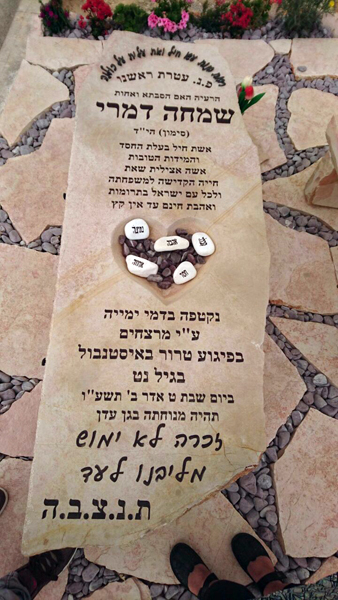 רבות בנות עשו חיל ואת עלית על כולנה
פ.נ. עטרת ראשנו
הרעיה האם הסבתא ואחות
שמחה דמרי
(סימון) הי״ד
אשת חיל בעלת החסד
והמידות הטובות
אשה אצילית שאת
חייה הקדישה למשפחתה
ולכל עם ישראל בתרומות
ואהבת חינם עד אין קץ
אהבה
נקטפה בדמי ימייה
ע״י מרצחים
בפיגוע טרור באיסטנבול
בגיל נט
ביום שבת ט אדר ב׳ תשע״ו
תהיה מנוחתה בגן עדן
זכרה לא ימוש
מליבנו לעד
ת.נ.צ.ב.ה